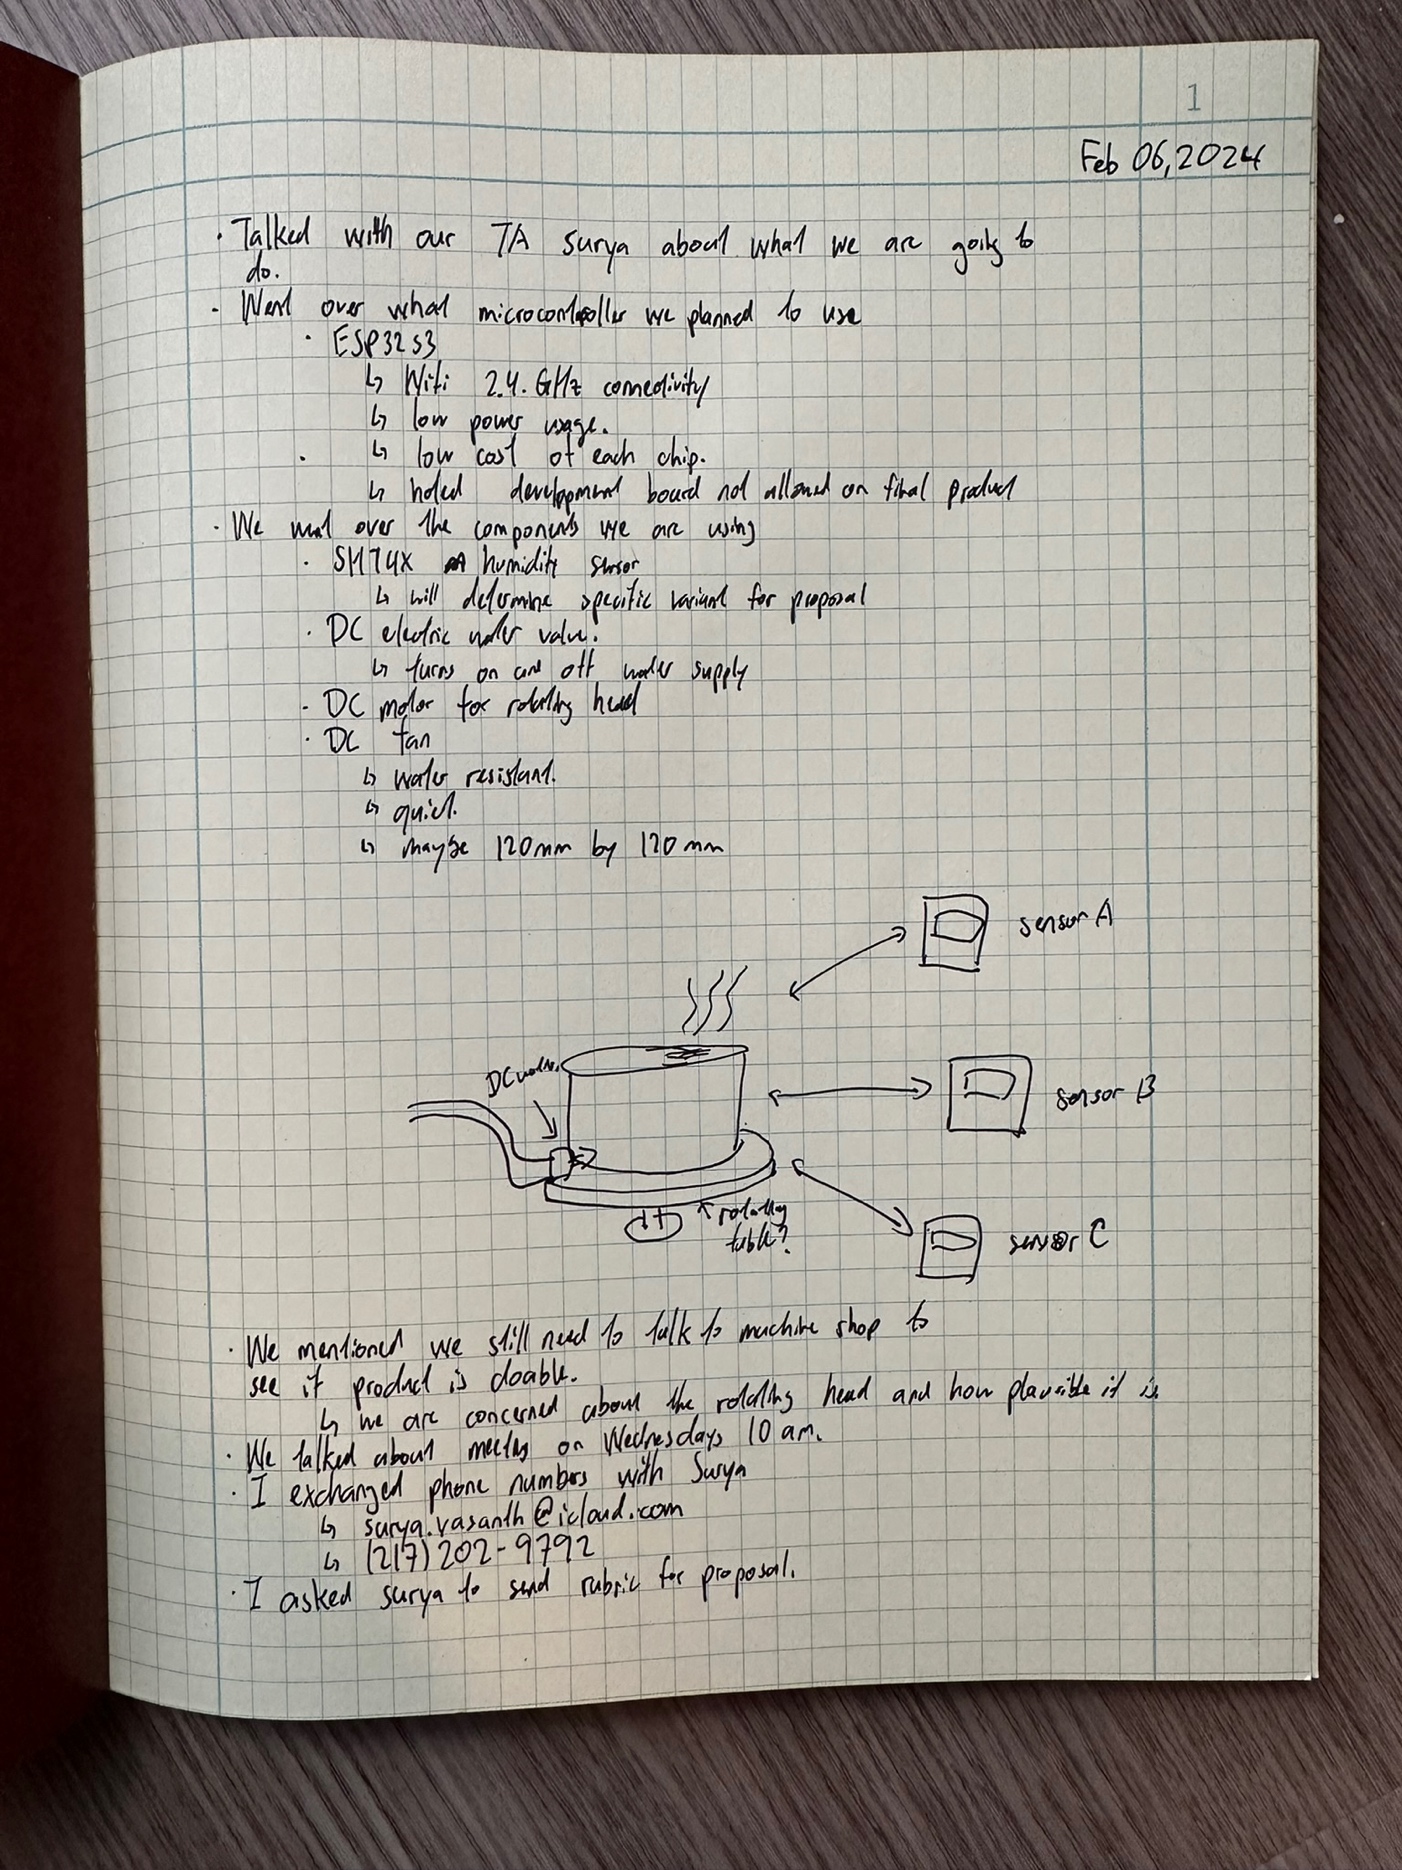 1
Feb 06, 2024
· Talked with our TA Surya about what we are going to
do.
· Went over what microcontroller we planned to use
· ESP32 s3
↳ Wifi 2.4. GHz connectivity
↳ low power usage.
· ↳ low cost of each chip.
↳ noted development board not allowed on final product
· We went over the components we are using
· SHT4X humidity sensor
↳ will determine specific variant for proposal
· DC electric water valve.
↳ turns on and off water supply
· DC motor for rotating head
· DC fan
↳ water resistant.
↳ quiet.
↳ maybe 120mm by 120mm
sensor A
DC valve.
sensor B
↑ rotating
table?
sensor C
· We mentioned we still need to talk to machine shop to
see if product is doable.
↳ we are concerned about the rotating head and how plausible it is
· We talked about meeting on Wednesdays 10 am.
· I exchanged phone numbers with Surya
↳ surya.vasanth@icloud.com
↳ (217) 202-9792
· I asked surya to send rubric for proposal.